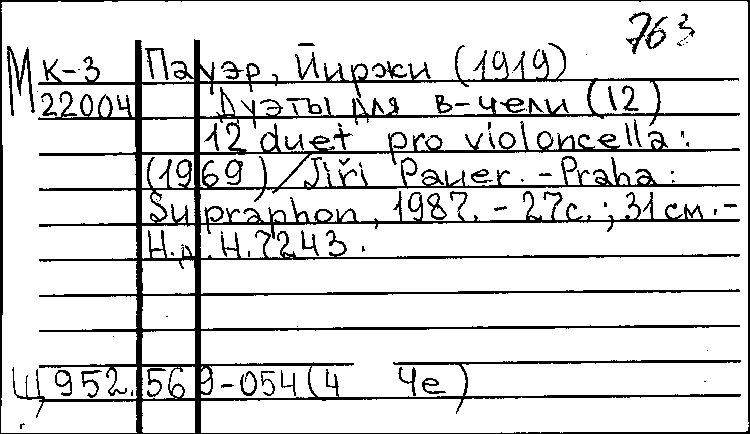 763
М К-3 Пауэр, Йиржи (1919)
22004 Дуэты для в-чели (12)
12 duet pro violoncella:
(1969) / Jiři Pauer. - Praha:
Supraphon, 1987. - 27с.; 31см. -
Н.д. H.7243.
Щ 952.569-054(4 Че)